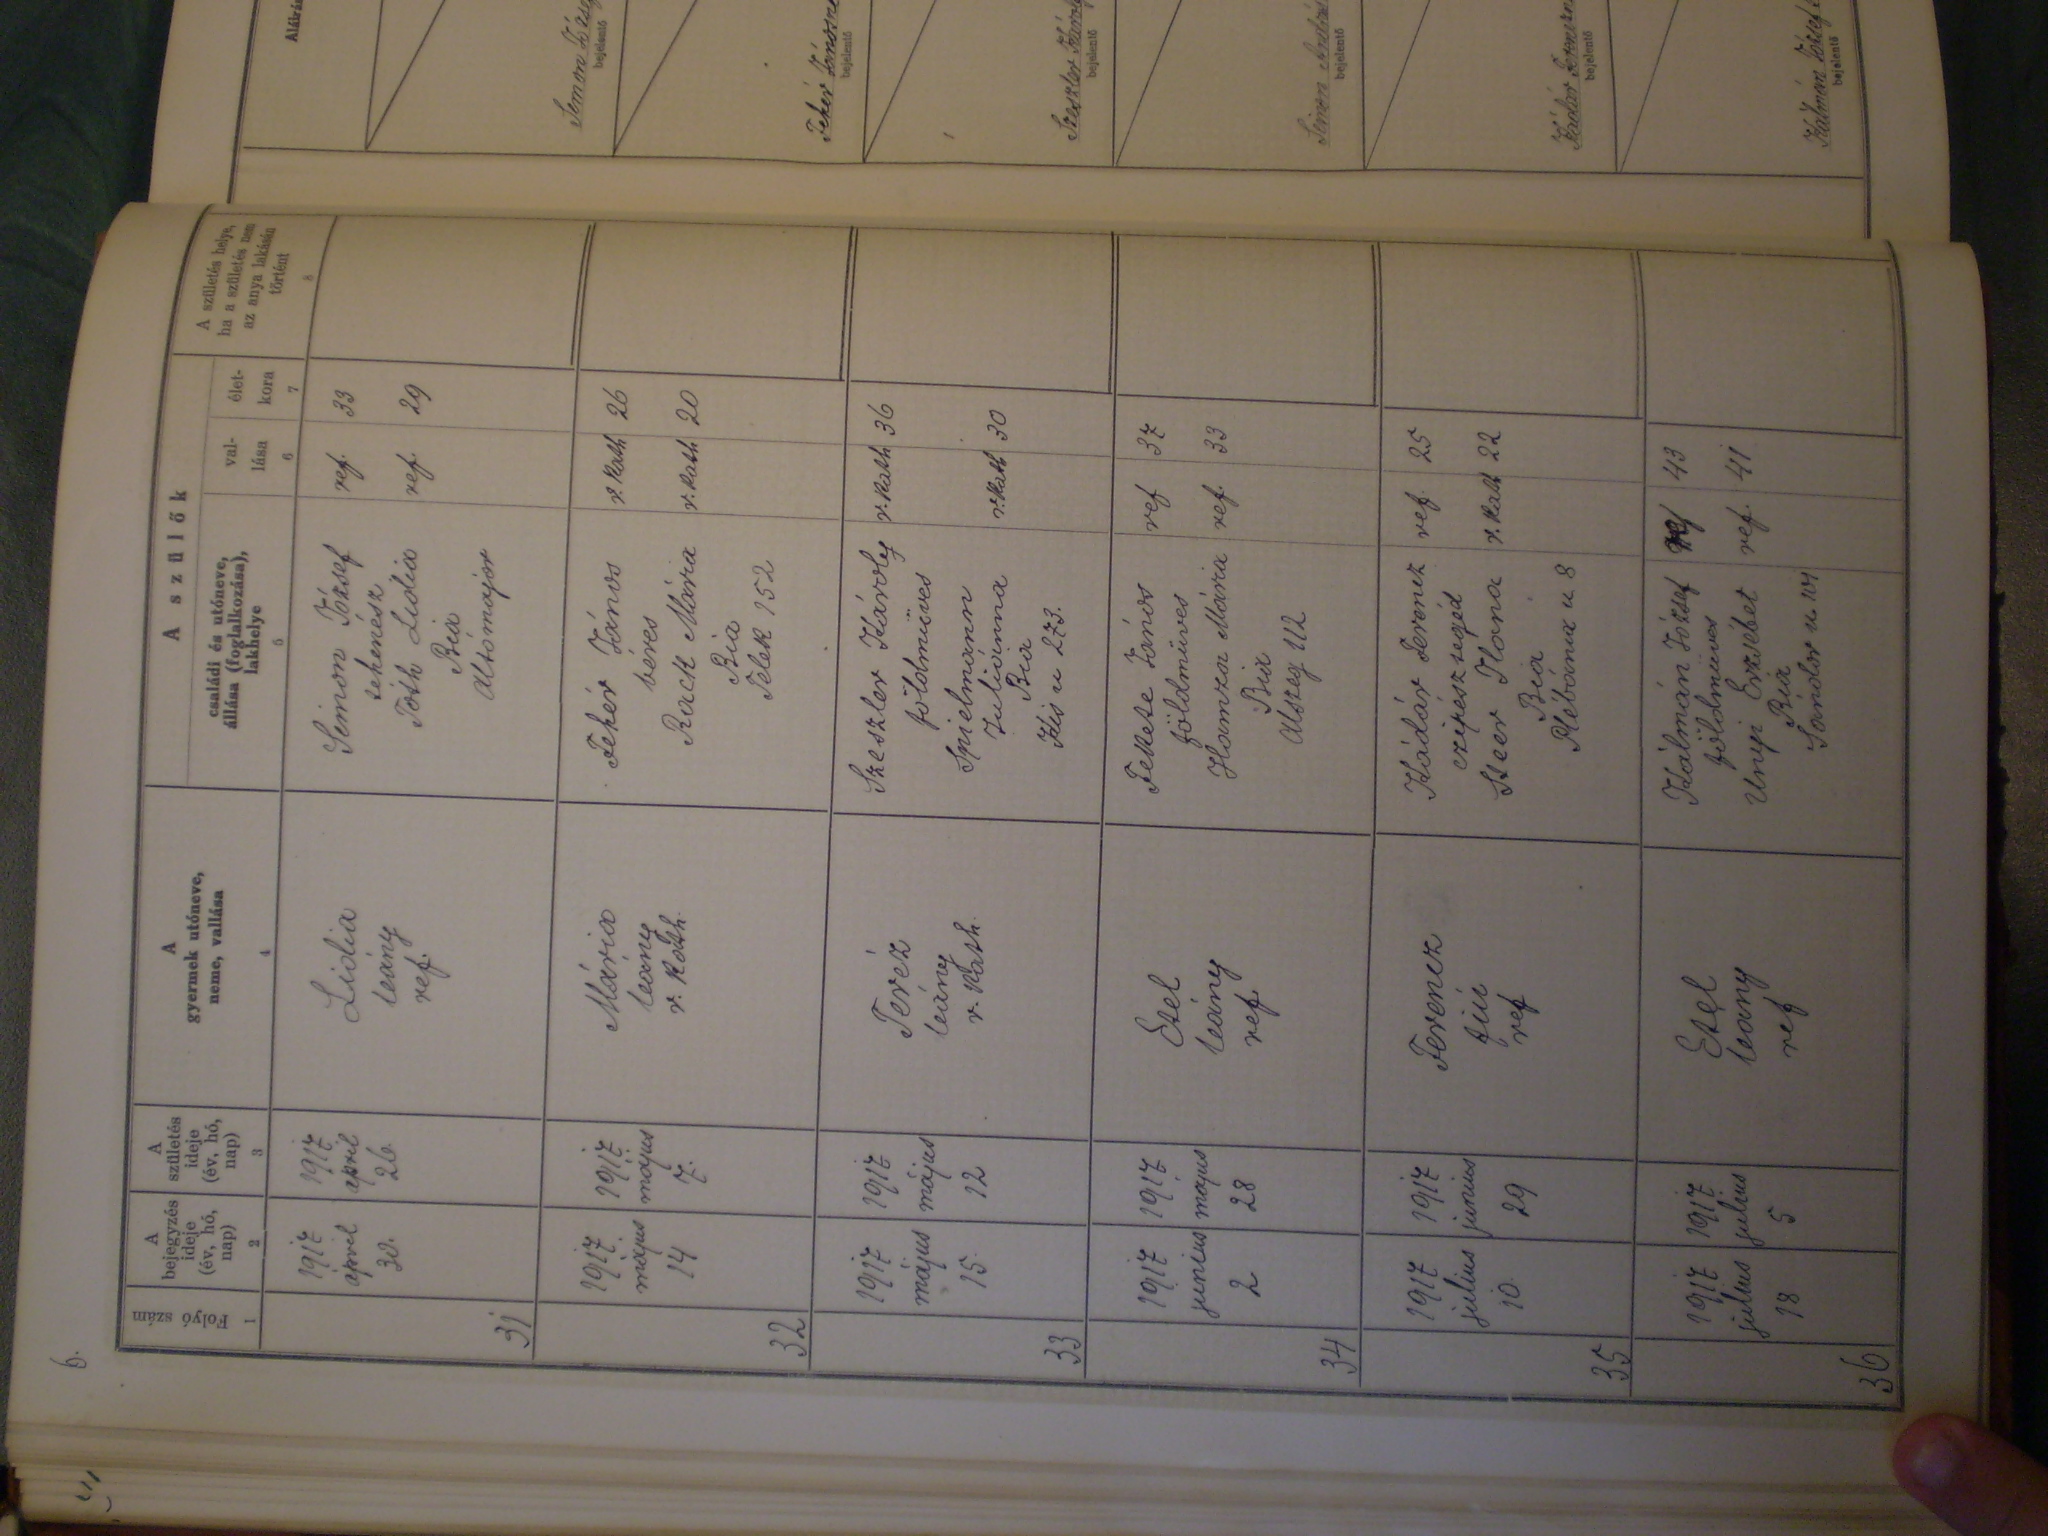 6.
Folyó szám
1
A
bejegyzés
ideje
(év, hó,
nap)
2
A
születés
ideje
(év, hó,
nap)
3
A
gyermek utóneve,
neme, vallása
4
A szülők
családi és utóneve,
állása (foglalkozása),
lakhelye
5
val-
lása
6
élet-
kora
7
A születés helye,
ha a születés nem
az anya lakásán
történt
8
31
1917
április
30.
1917
április
26.
Lidia
leány
ref.
Simon József
tehenész
Tóth Lidia
Bia
Alsómajor
ref. 33
ref. 29
32
1917
május
14
1917
május
7.
Mária
leány
r. kath.
Fehér János
béres
Rack Mária
Bia
Telek 152
r. kath 26
r. kath 20
33
1917
május
15.
1917
május
12
Teréz
leány
r. kath.
Szeszler Károly
földmüves
Spielmann
Juliánna
Bia
Kis u 273.
r. kath 36
r. kath 30
34
1917
junius
2
1917
május
28
Etel
leány
ref.
Fekete János
földmüves
Hamza Mária
Bia
Alszeg 112
ref 37
ref. 33
35
1917
julius
10.
1917
junius
29
Ferencz
fiú
ref
Kádár Ferencz
czipészsegéd
Steer Ilona
Bia
Plébánia u 8
ref. 25
r. kath 22
36
1917
julius
18
1917
julius
5
Etel
leány
ref
Kálmán József
földmüves
Unyi Erzsébet
Bia
Sándor u. 104
ref 43
ref. 41
Aláírás
bejelentő
Fehér Jánosné
bejelentő
Szeszler Károly
bejelentő
bejelentő
Kádár Ferencné
bejelentő
Kálmán József
bejelentő